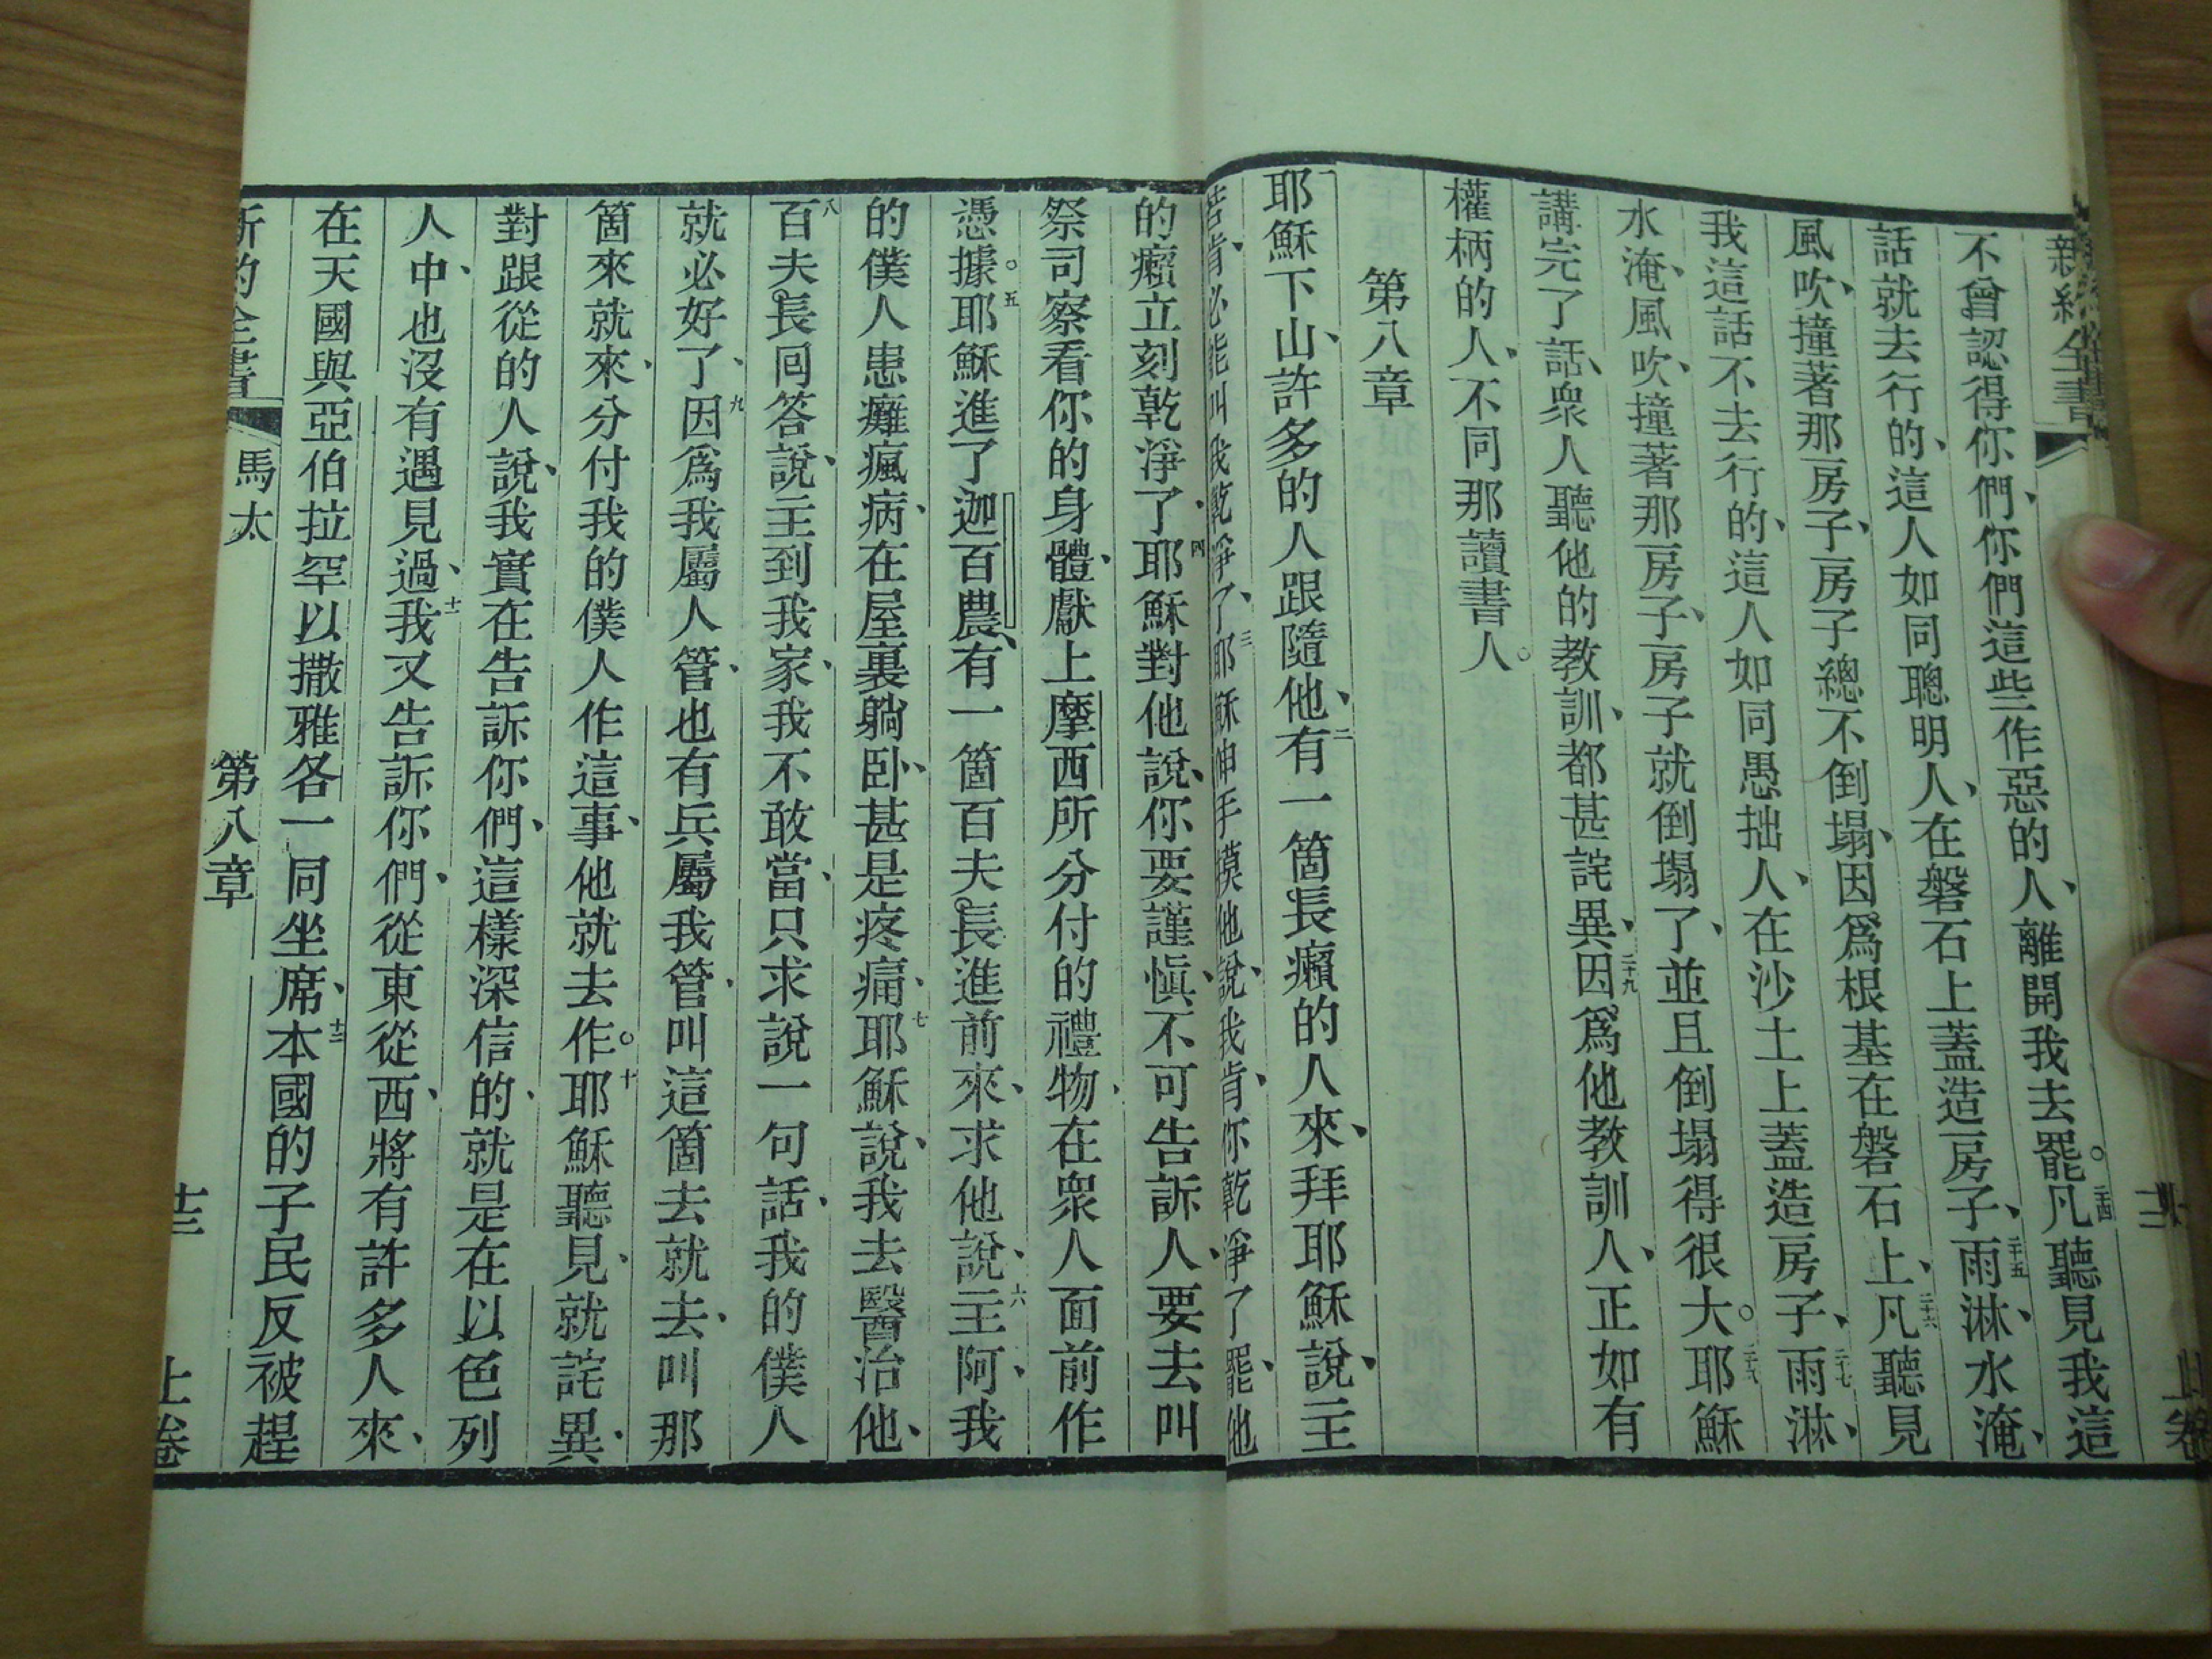 新約全書
不曾認得你們、你們這些作惡的人、離開我去罷。二十四凡聽見我這
話就去行的、這人如同聰明人、在磐石上蓋造房子、二十五雨淋、水淹、
風吹、撞著那房子、房子總不倒塌、因爲根基在磐石上、二十六凡聽見
我這話不去行的、這人如同愚拙人、在沙土上蓋造房子、二十七雨淋、
水淹、風吹、撞著那房子、房子就倒塌了、並且倒塌得很大。二十八耶穌
講完了話、衆人聽他的教訓、都甚詫異、二十九因爲他教訓人、正如有
權柄的人、不同那讀書人。
第八章
一耶穌下山、許多的人跟隨他、二有一箇長癩的人來、拜耶穌說、主
若肯、必能叫我乾淨了、三耶穌伸手摸他說、我肯、你乾淨了罷、他
的癩立刻乾淨了、四耶穌對他說、你要謹愼、不可告訴人、要去叫
祭司察看你的身體、獻上摩西所分付的禮物、在衆人面前作
憑據。五耶穌進了迦百農、有一箇百夫長進前來、求他說、六主阿、我
的僕人患癱瘋病、在屋裏躺卧、甚是疼痛、七耶穌說、我去醫治他、
八百夫長囘答說、主到我家、我不敢當、只求說一句話、我的僕人
就必好了、九因爲我屬人管、也有兵屬我管、叫這箇去就去、叫那
箇來就來、分付我的僕人作這事、他就去作。十耶穌聽見、就詫異、
對跟從的人說、我實在告訴你們、這樣深信的、就是在以色列
人中、也沒有遇見過、十一我又告訴你們、從東從西、將有許多人來、
在天國與亞伯拉罕以撒雅各一同坐席、十二本國的子民反被趕
新約全書 馬太 第八章 十三 上卷